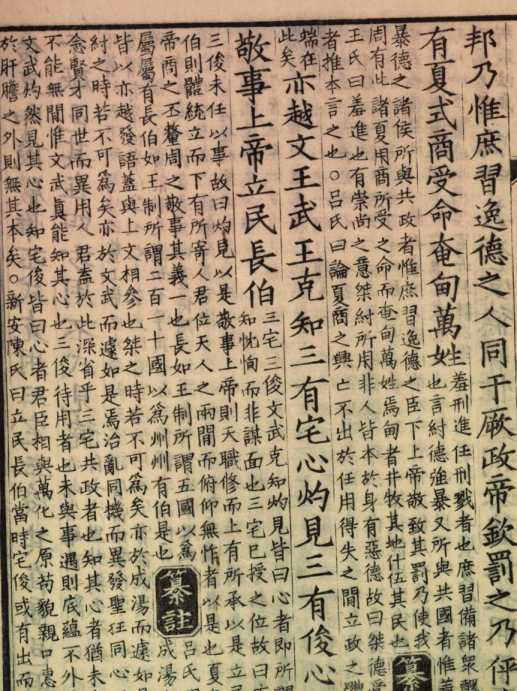 邦乃惟庶習逸德之人同于厥政帝欽罰之乃伻
有夏式商受命奄甸萬姓
羞刑進任刑戮者也庶習備諸衆
也言紂德強暴又所與共國者惟羞
暴德之諸侯所與共政者惟庶習逸德之臣下上帝敬致其罰乃使我
周有此諸夏用商所受之命而奄甸萬姓焉甸者井牧其地什伍其民也
纂
王氏曰羞進也有崇尚之意桀紂所用非人皆本於身有惡德故曰桀德受
者推本言之也○呂氏曰論夏商之興亡不出於任用得失之間立政之
端在
此矣
亦越文王武王克知三有宅心灼見三有俊心
敬事上帝立民長伯
三宅三俊文武克知灼見皆曰心者即所
知忱恂而非謀面也三宅已授之位故曰
三俊未任以事故曰灼見以是敬事上帝則天職修而上有所承以是立
伯則體統立而下有所寄人君位天人之兩間而俯仰無怍者以是也夏
帝商之丕釐周之敬事其義一也長如王制所謂五國以爲
屬屬有長伯如王制所謂二百一十國以爲州州有伯是也
纂註
呂氏
成湯
皆以亦越發語蓋與上文相參也桀之時若不可爲矣亦於成湯而遽如
紂之時若不可爲矣亦於文武而遽如是焉治亂同機而異發聖狂同心
念賢才同世而異用人君盍於此深省乎三宅共政者也知其心者猶未
不能無間惟文武眞能知其心也三俊待用者也未與事遇則底蘊不外
文武灼然見其心也知宅俊皆曰心者君臣相與萬化之原苟貌親口惠
於肝膽之外則無其本矣○新安陳氏曰立民長伯當時宅俊或有出而